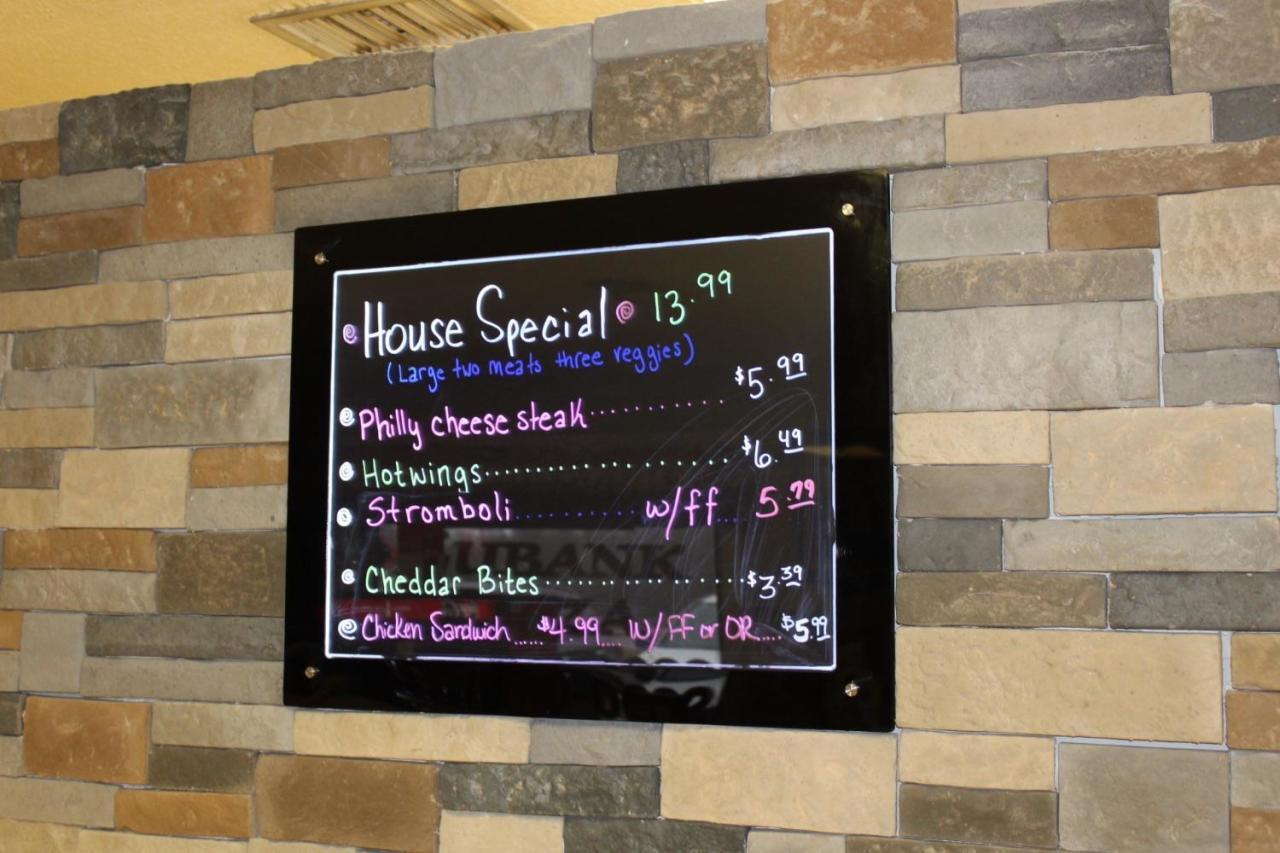 House Special 13.99
(Large two meats three veggies)
Philly cheese steak........... $5.99
Hotwings.................. $6.49
Stromboli.......... w/ff... 5.79
UBANK
Cheddar Bites.................. $3.39
Chicken Sandwich...... $4.99.... w/FF or OR.... $5.99